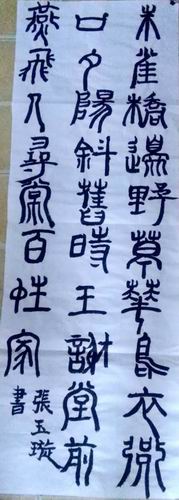 朱雀橋邊野草華烏衣巷
口夕陽斜舊時王謝堂前
燕飛入尋常百姓家
張玉璇
書